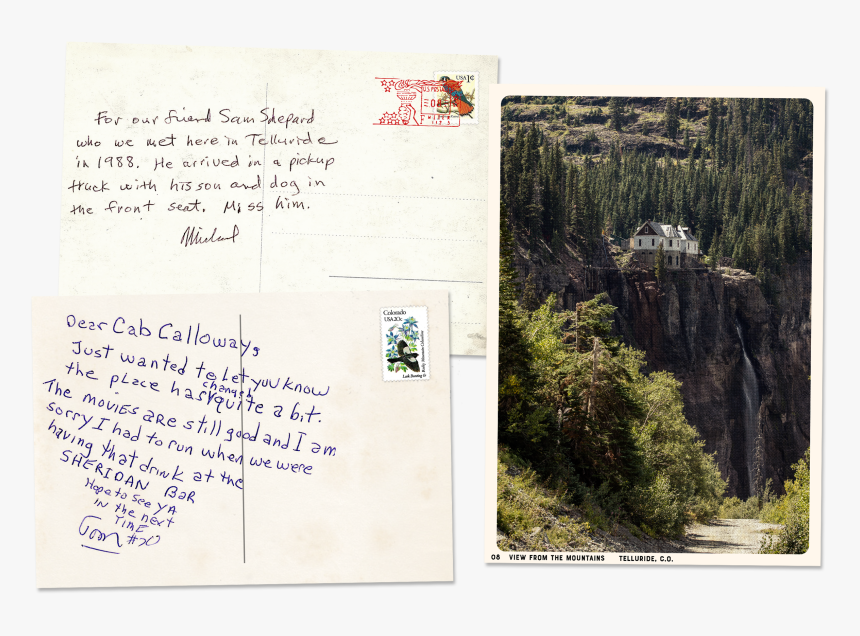 For our friend Sam Shepard
who we met here in Telluride
in 1988. He arrived in a pickup
truck with his son and dog in
the front seat. Miss him.
Michael
USA 1c
U.S. POSTAGE
Dear Cab Calloway,
Just wanted to let you know
the place has changed quite a bit.
The movies are still good and I am
sorry I had to run when we were
having that drink at the
SHERIDAN BAR
Hope to see YA
IN the next
TIME
Tom #20
Colorado
USA 20c
Lark Bunting &
Rocky Mountain Columbine
08 VIEW FROM THE MOUNTAINS TELLURIDE, C.O.